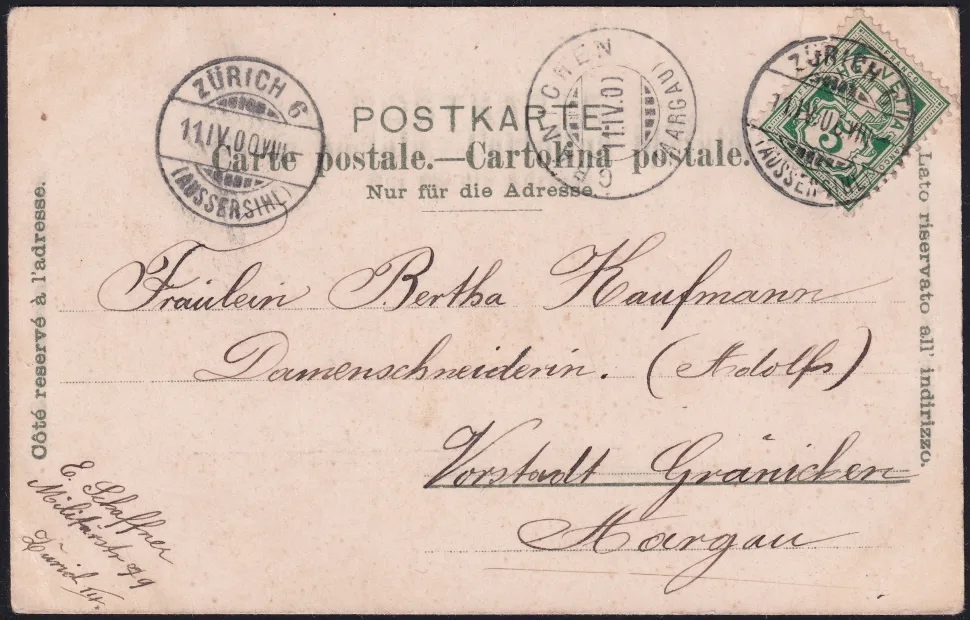 POSTKARTE
Carte postale.—Cartolina postale.
Nur für die Adresse.
Côté reservé à l'adresse.
Lato riservato all' indirizzo.
ZÜRICH 6
11.IV.00.VIII
(AUSSERSIHL)
GRÄNICHEN
11.IV.00
(AARGAU)
ZÜRICH
11.IV.00.VIII
(AUSSER
HELVETIA
5
Fräulein Bertha Kaufmann
Damenschneiderin. (Adolfs)
Vorstadt Gränichen
Aargau
E. Schaffner
Militärstr
Zürich III.